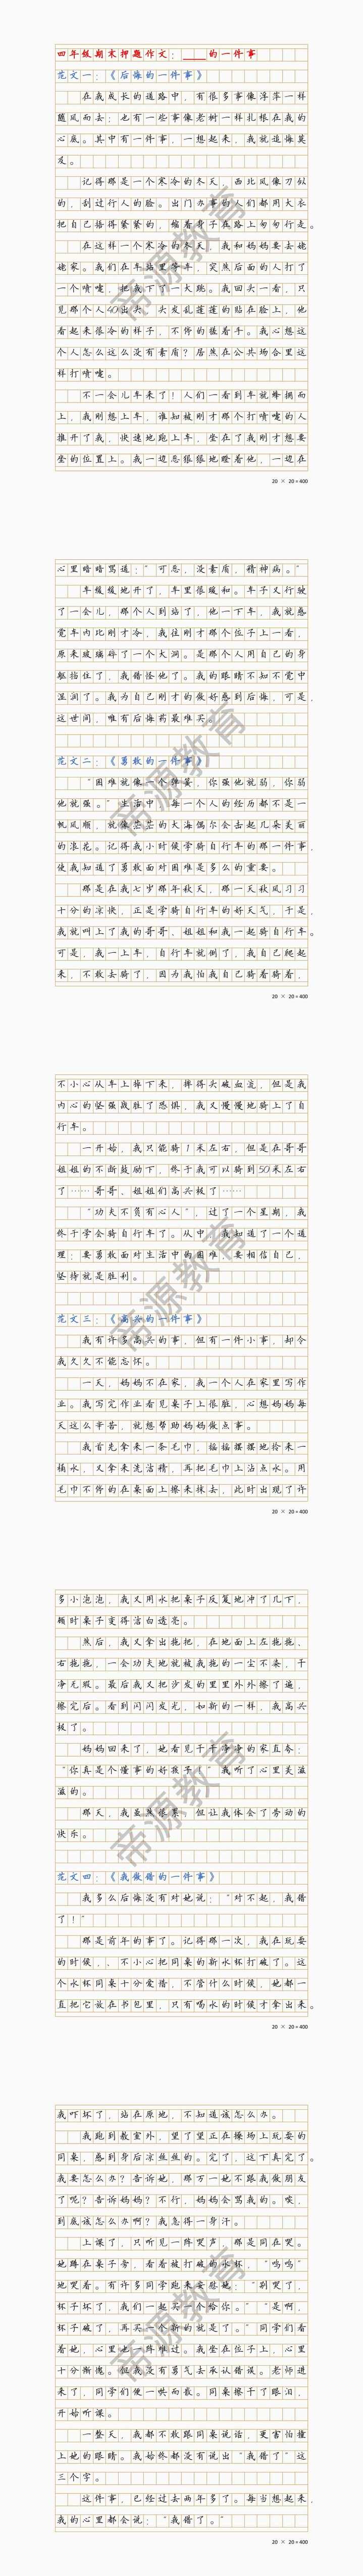 四年级期末押题作文：____的一件事
范文一：《后悔的一件事》
在我成长的道路中，有很多事像浮萍一样
随风而去；也有一些事像老树一样扎根在我的
心底。其中有一件事，一想起来，我就追悔莫
及。
记得那是一个寒冷的冬天，西北风像刀似
的，刮过行人的脸。出门办事的人们都用大衣
把自己捂得紧紧的，缩着身子在路上匆匆行走。
在这样一个寒冷的冬天，我和妈妈要去姥
姥家。我们在车站里等车，突然后面的人打了
一个喷嚏，把我下了一大跳。我回头一看，只
见那个人40出头，头发乱蓬蓬的贴在脸上，他
看起来很冷的样子，不停的搓着手。我心想这
个人怎么这么没有素质？居然在公共场合里这
样打喷嚏。
不一会儿车来了！人们一看到车就蜂拥而
上，我刚想上车，谁知被刚才那个打喷嚏的人
推开了我，快速地跑上车，坐在了我刚才想要
坐的位置上。我一边忍狠狠地瞪着他，一边在
20 × 20 = 400
心里暗暗骂道：“可恶，没素质，精神病。”
车缓缓地开了，车里很暖和。车子又行驶
了一会儿，那个人到站了，他一下车，我就感
觉车内比刚才冷，我往刚才那个位子上一看，
原来玻璃碎了一个大洞。是那个人用自己的身
躯挡住了，我错怪他了。我的眼睛不知不觉中
湿润了。我为自己刚才的做好感到后悔，可是，
这世间，唯有后悔药最难买。
范文二：《勇敢的一件事》
“困难就像一个弹簧，你强他就弱，你弱
他就强。”生活中，每一个人的经历都不是一
帆风顺，就像茫茫的大海偶尔会击起几朵美丽
的浪花。记得我小时候学骑自行车的那一件事，
使我知道了勇敢面对困难是多么的重要。
那是在我七岁那年秋天，那一天秋风习习
十分的凉快，正是学骑自行车的好天气，于是，
我就叫上了我的哥哥、姐姐和我一起骑自行车。
可是，我一上车，自行车就倒了，我自己爬起
来，不敢去骑了，因为我怕我自己骑着骑着，
20 × 20 = 400
不小心从车上掉下来，摔得头破血流，但是我
内心的坚强战胜了恐惧，我又慢慢地骑上了自
行车。
一开始，我只能骑1米左右，但是在哥哥
姐姐的不断鼓励下，终于我可以骑到50米左右
了……哥哥、姐姐们高兴极了……
“功夫不负有心人”，过了一个星期，我
终于学会骑自行车了。从中，我知道了一个道
理：要勇敢面对生活中的困难，要相信自己，
坚持就是胜利。
范文三：《高兴的一件事》
我有许多高兴的事，但有一件小事，却令
我久久不能忘怀。
一天，妈妈不在家，我一个人在家里写作
业。我写完作业看见桌子上很脏，心想妈妈每
天这么辛苦，就想帮助妈妈做点事。
我首先拿来一条毛巾，摇摇摆摆地拎来一
桶水，又拿来洗洁精，再把毛巾上沾点水。用
毛巾不停的在桌面上擦来抹去，此时出现了许
20 × 20 = 400
多小泡泡，我又用水把桌子反复地冲了几下，
顿时桌子变得洁白透亮。
然后，我又拿出拖把，在地面上左拖拖、
右拖拖，一会功夫地就被我拖的一尘不染，干
净无瑕。最后我又把沙发的里里外外擦了遍，
擦完后。看到闪闪发光，如新的一样，我高兴
极了。
妈妈回来了，她看见干干净净的家直夸：
“你真是个懂事的好孩子！”我听了心里美滋
滋的。
那天，我虽然很累，但让我体会了劳动的
快乐。
范文四：《我做错的一件事》
我多么后悔没有对她说：“对不起，我错
了！”
那是前年的事了。记得那一次，我在玩耍
的时候，不小心把同桌的新水杯打破了。这
个水杯同桌十分爱惜，不管什么时候，她都一
直把它放在书包里，只有喝水的时候才拿出来。
20 × 20 = 400
我吓坏了，站在原地，不知道该怎么办。
我跑到教室外，望了望正在操场上玩耍的
同桌，感到身后凉丝丝的。完了，这下真完了。
我要怎么办？告诉她，那万一她不跟我做朋友
了呢？告诉妈妈？不行，妈妈会骂我的。唉，
到底该怎么办啊？我急得一身汗。
上课了，只听见一阵哭声，那是同在哭。
她蹲在桌子旁，看着被打破的水杯，“呜呜”
地哭着。有许多同学跑来安慰她：“别哭了，
杯子坏了，我们一起买一个给你。”“是啊，
杯子破了，再买一个新的就是了。”同学们看
着她，心里也一阵难过。我坐在位子上，心里
十分惭愧。但我没有勇气去承认错误。老师进
来了，同学们便一哄而散。同桌擦干了眼泪，
开始听课。
一整天，我都不敢跟同桌说话，更害怕撞
上她的眼睛。我始终都没有说出“我错了”这
三个字。
这件事，已经过去两年多了。每当想起来，
我的心里都会说：“我错了。”
20 × 20 = 400
帝源教育
帝源教育
帝源教育
帝源教育
帝源教育